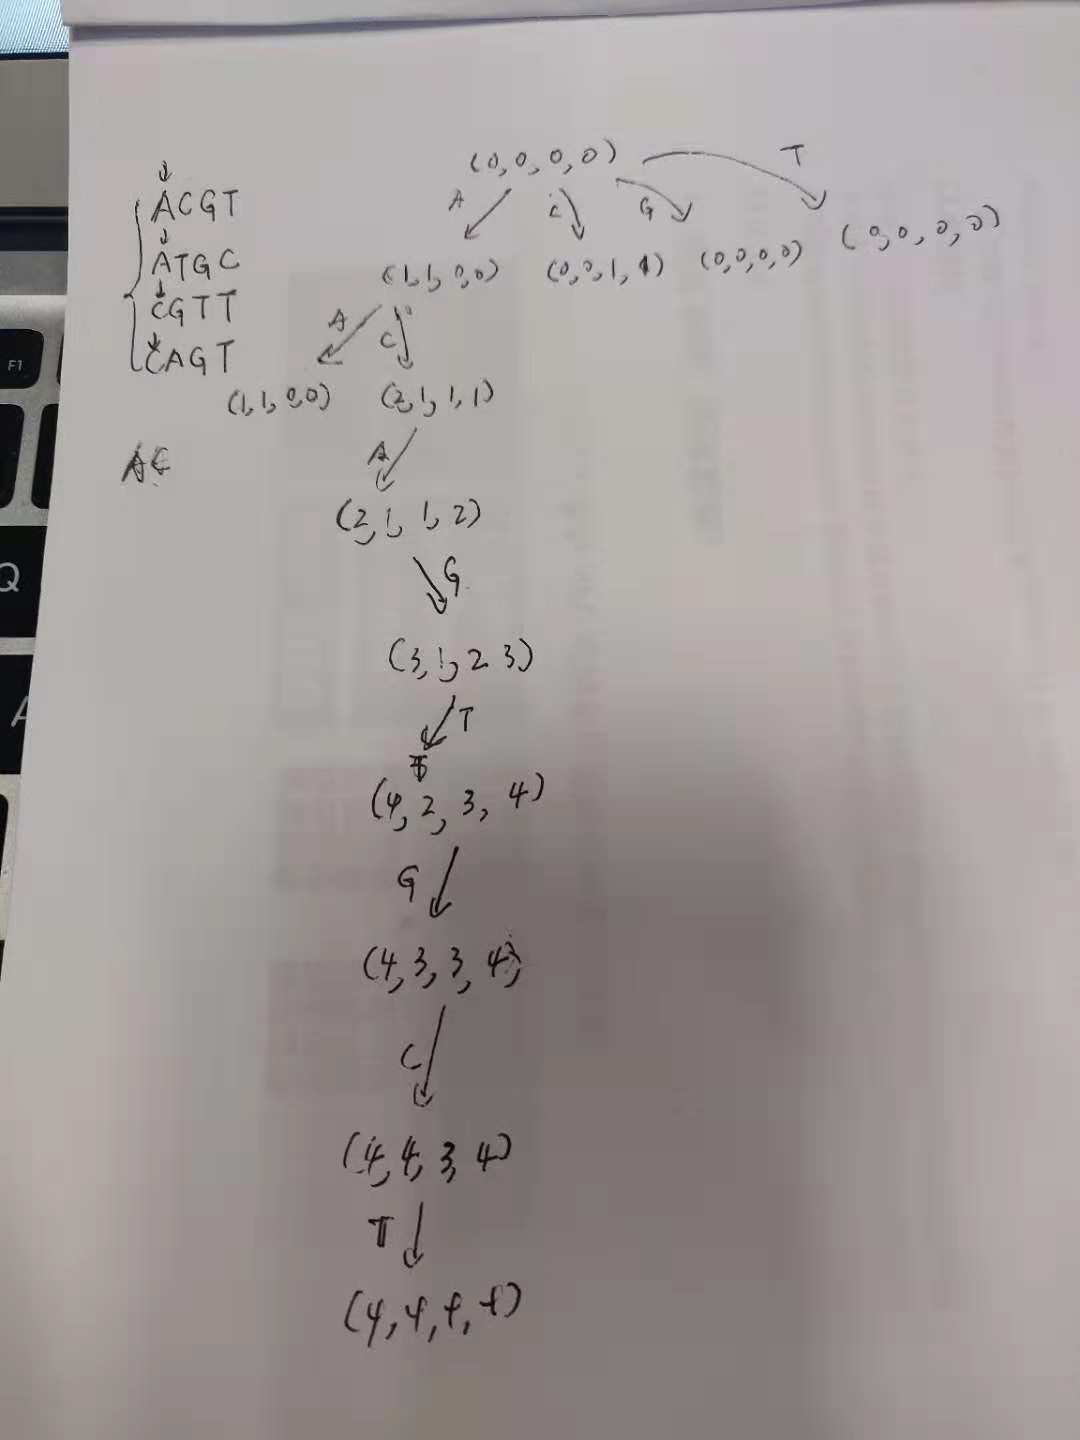 (0,0,0,0)
T
A
C
G
ACGT
ATGC
CGTT
CAGT
(1,1,0,0) (0,0,1,1) (0,0,0,0) (0,0,0,0)
A
C
(1,1,0,0) (2,1,1,1)
AC
A
(2,1,1,2)
G
(3,1,2 3)
T
(4,2,3,4)
G
(4,3,3,4)
C
(4,4,3,4)
T
(4,4,4,4)
F1
Q
A